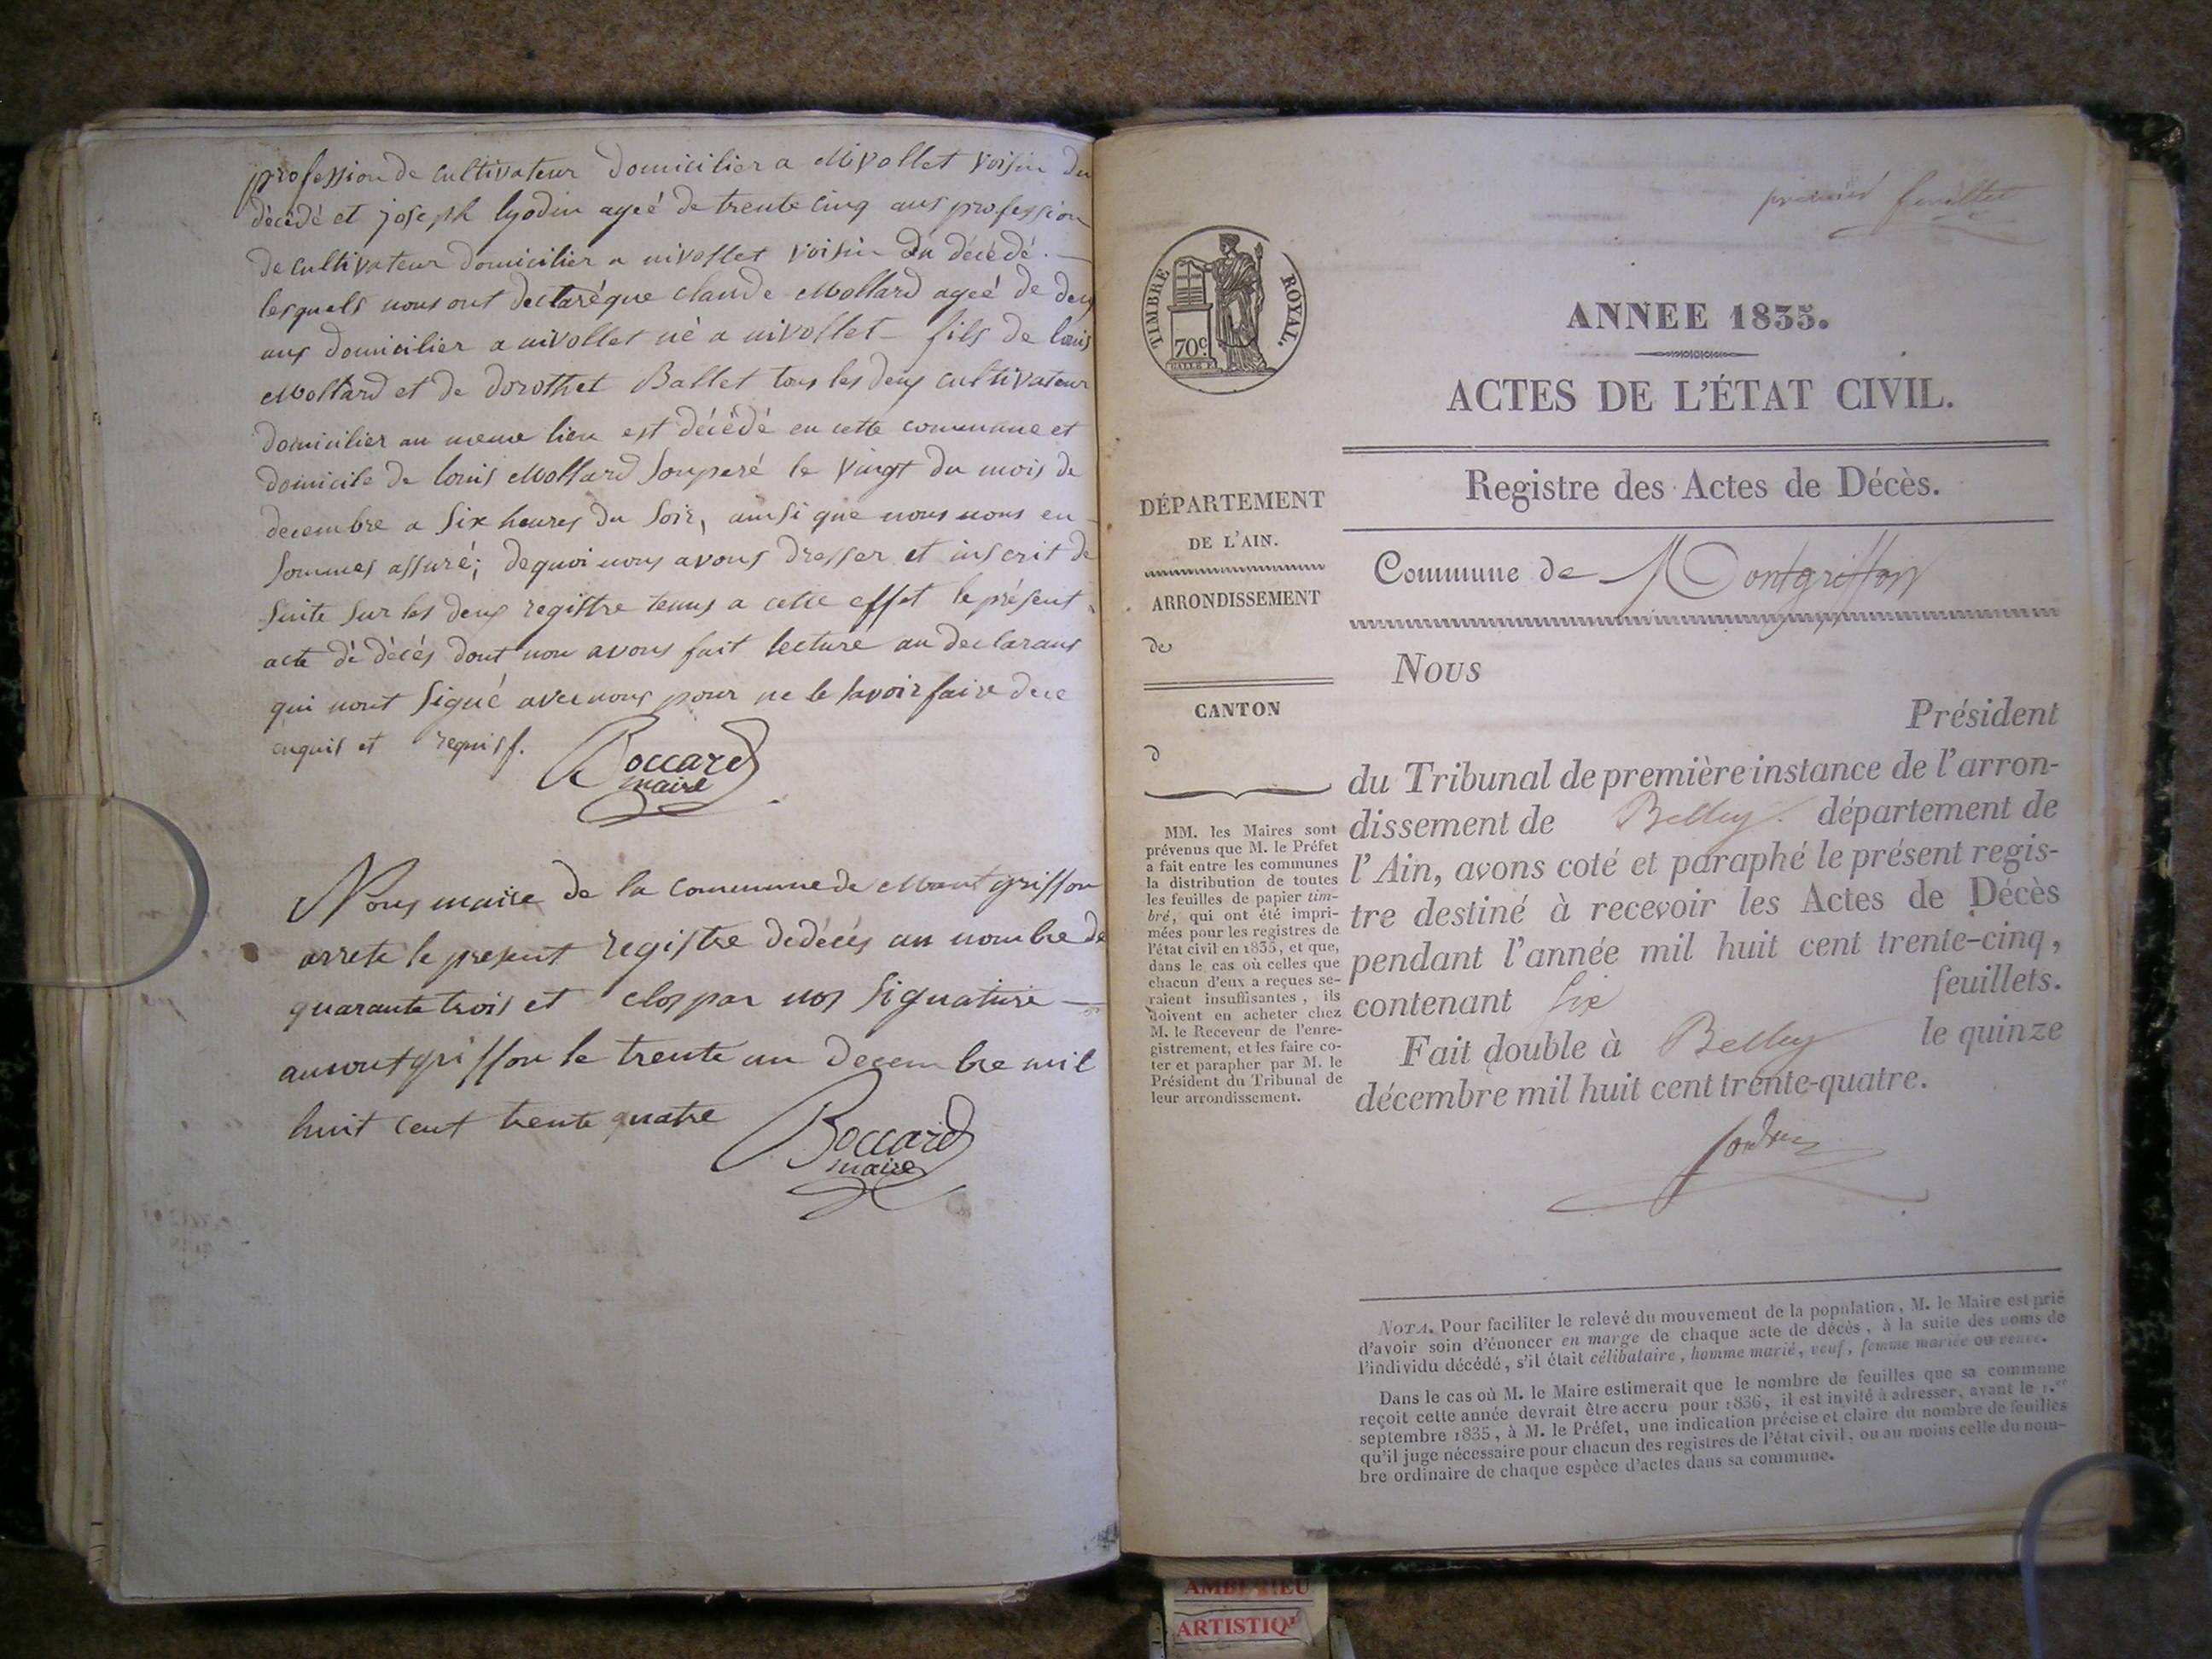 profession de cultivateur domicilier a Nivollet voisin du
décédé et joseph lyodin ageé de trente cinq ans profession
de cultivateur domicilier a nivollet voisin du décédé. —
lesquels nous ont declaré que claude Mollard ageé de deux
ans domicilier a nivollet né a nivollet – fils de louis
Mollard et de dorothet Ballet tous les deux cultivateur
domicilier au meme lieu est décédé en cette commune et
domicile de louis Mollard son peré le vingt du mois de
decembre a six heures du soir, ainsi que nous nous en
sommes assuré; de quoi nous avons dresser et inscrit de
suite sur les deux registre tenus a cette effet le présent
acte dé décés dont nou avons fait lecture au declarans
qui nont signé avec nous pour ne le savoir faire de ce
enquis et requis.
Boccard
maire
Nous maire de la commune de Montgriffon
arrete le present registre de décés au nombre de
quarante trois et clos par nos signature —
a montgriffon le trente un decembre mil
huit cent trente quatre
Boccard
maire
premier feuillet
TIMBRE ROYAL.
70c.
ANNEE 1835.
ACTES DE L'ÉTAT CIVIL.
Registre des Actes de Décès.
Commune de Montgriffon
DÉPARTEMENT
DE L'AIN.
ARRONDISSEMENT
de
CANTON
d
MM. les Maires sont
prévenus que M. le Préfet
a fait entre les communes
la distribution de toutes
les feuilles de papier tim-
bré, qui ont été impri-
mées pour les registres de
l'état civil en 1835, et que,
dans le cas où celles que
chacun d'eux a reçues se-
raient insuffisantes, ils
doivent en acheter chez
M. le Receveur de l'enre-
gistrement, et les faire co-
ter et parapher par M. le
Président du Tribunal de
leur arrondissement.
Nous
Président
du Tribunal de première instance de l'arron-
dissement de Belley. département de
l'Ain, avons coté et paraphé le présent regis-
tre destiné à recevoir les Actes de Décès
pendant l'année mil huit cent trente-cinq,
contenant six feuillets.
Fait double à Belley le quinze
décembre mil huit cent trente-quatre.
NOTA. Pour faciliter le relevé du mouvement de la population, M. le Maire est prié
d'avoir soin d'énoncer en marge de chaque acte de décès, à la suite des noms de
l'individu décédé, s'il était célibataire, homme marié, veuf, femme mariée ou veuve.
Dans le cas où M. le Maire estimerait que le nombre de feuilles que sa commune
reçoit cette année devrait être accru pour 1836, il est invité à adresser, avant le 1.er
septembre 1835, à M. le Préfet, une indication précise et claire du nombre de feuilles
qu'il juge nécessaire pour chacun des registres de l'état civil, ou au moins celle du nom-
bre ordinaire de chaque espèce d'actes dans sa commune.
AMBERIEU
ARTISTIQ